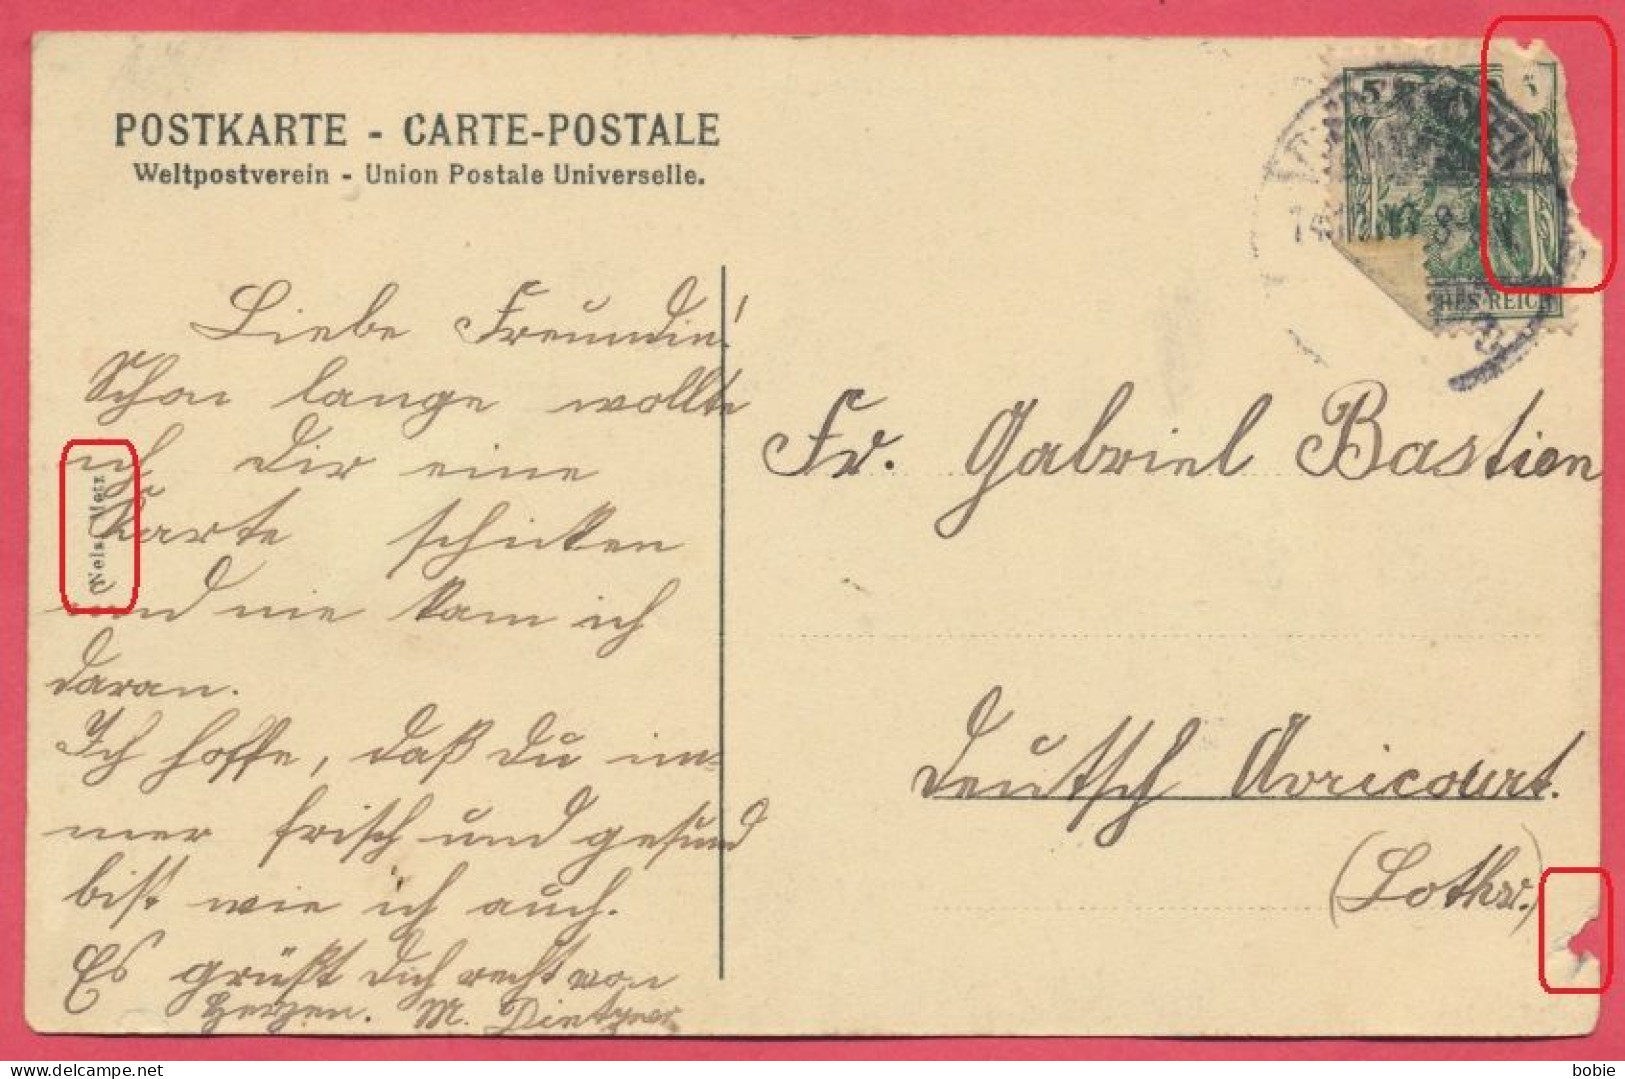 POSTKARTE - CARTE-POSTALE
Weltpostverein - Union Postale Universelle.
5
HES REICH
Liebe Freundin!
Schon lange wollte
ich dir eine
Karte schicken
und nie kam ich
daran.
Ich hoffe, daß du im=
mer frisch und gesund
bist wie ich auch.
Es grüßt dich recht von
Herzen. M.
Nels, Metz
Fr. Gabriel Bastien
Deutsch Avricourt.
(Lothr.)
bobie